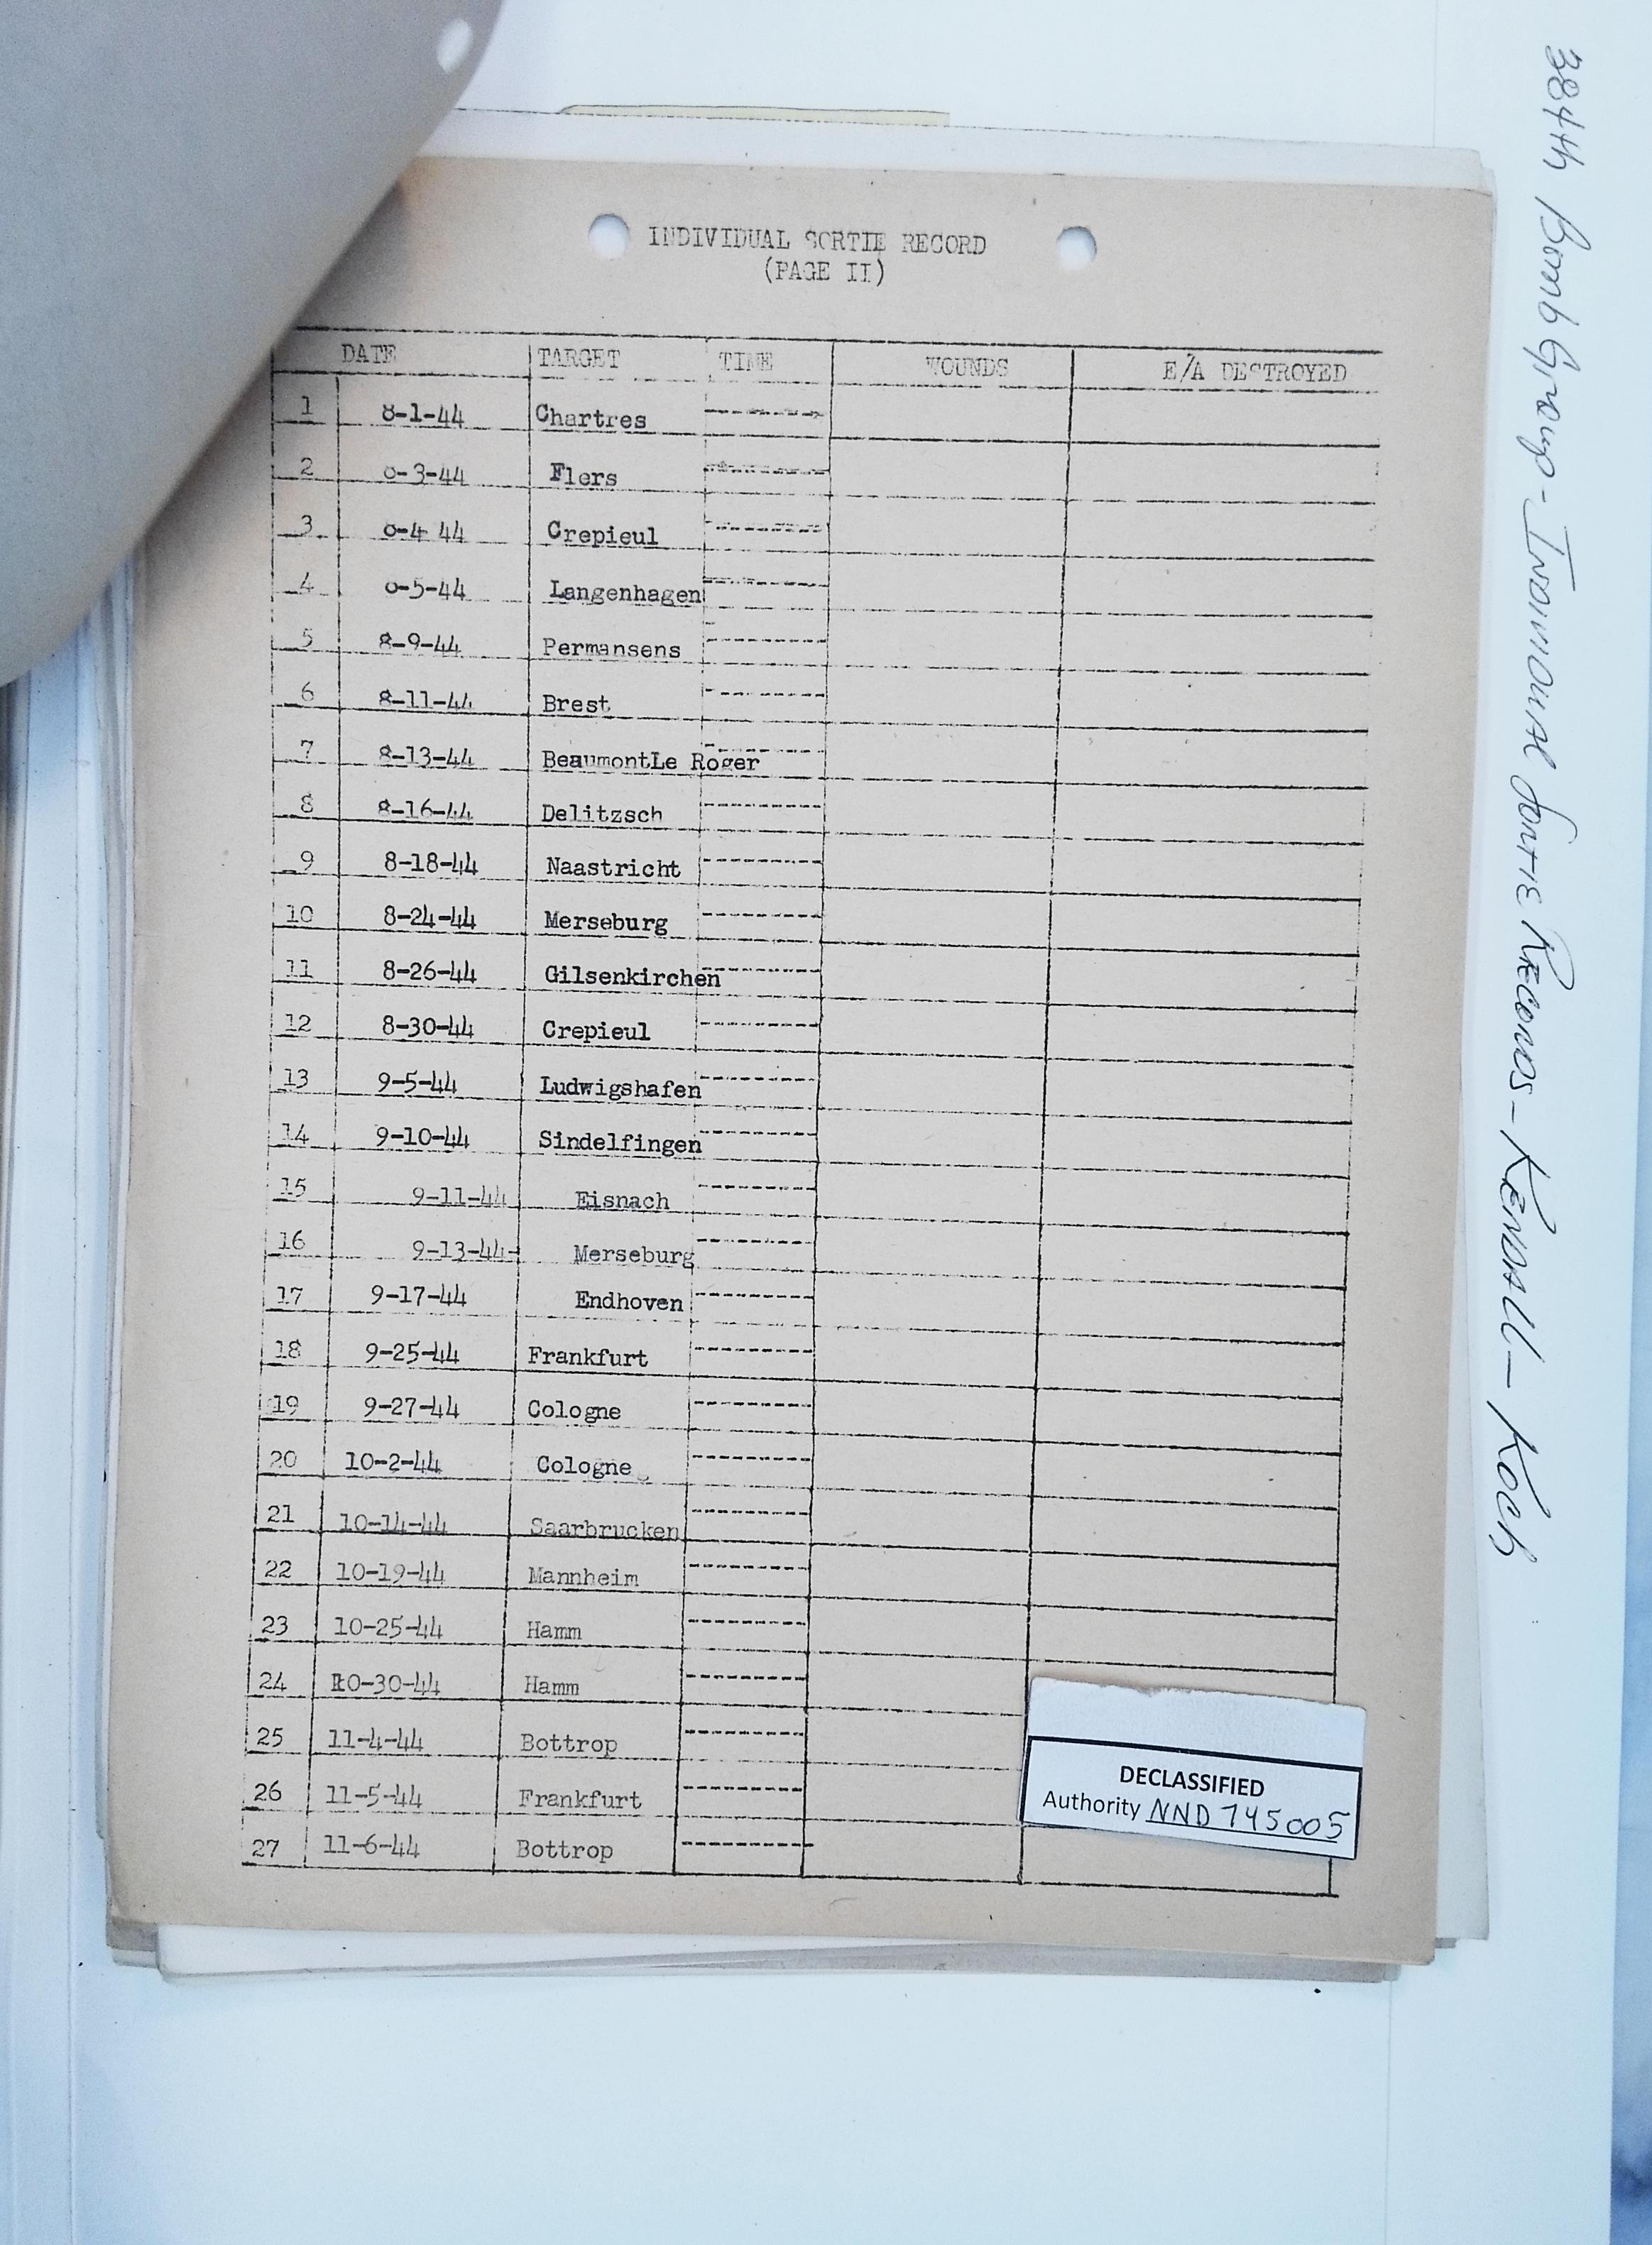 INDIVIDUAL SORTIE RECORD
(PAGE II)
DATE TARGET TIME WOUNDS E/A DESTROYED
1 8-1-44 Chartres ---------
2 8-3-44 Flers ---------
3 8-4 44 Crepieul ---------
4 8-5-44 Langenhagen ---------
5 8-9-44 Permansens ---------
6 8-11-44 Brest ---------
7 8-13-44 BeaumontLe Roger ---------
8 8-16-44 Delitzsch ---------
9 8-18-44 Naastricht ---------
10 8-24-44 Merseburg ---------
11 8-26-44 Gilsenkirchen ---------
12 8-30-44 Crepieul ---------
13 9-5-44 Ludwigshafen ---------
14 9-10-44 Sindelfingen ---------
15 9-11-44 Eisnach ---------
16 9-13-44 Merseburg ---------
17 9-17-44 Endhoven ---------
18 9-25-44 Frankfurt ---------
19 9-27-44 Cologne ---------
20 10-2-44 Cologne ---------
21 10-14-44 Saarbrucken ---------
22 10-19-44 Mannheim ---------
23 10-25-44 Hamm ---------
24 10-30-44 Hamm ---------
25 11-4-44 Bottrop ---------
26 11-5-44 Frankfurt ---------
27 11-6-44 Bottrop ---------
DECLASSIFIED
Authority NND 745005
384th Bomb Group - Individual Sortie Records - Kendall - Koch